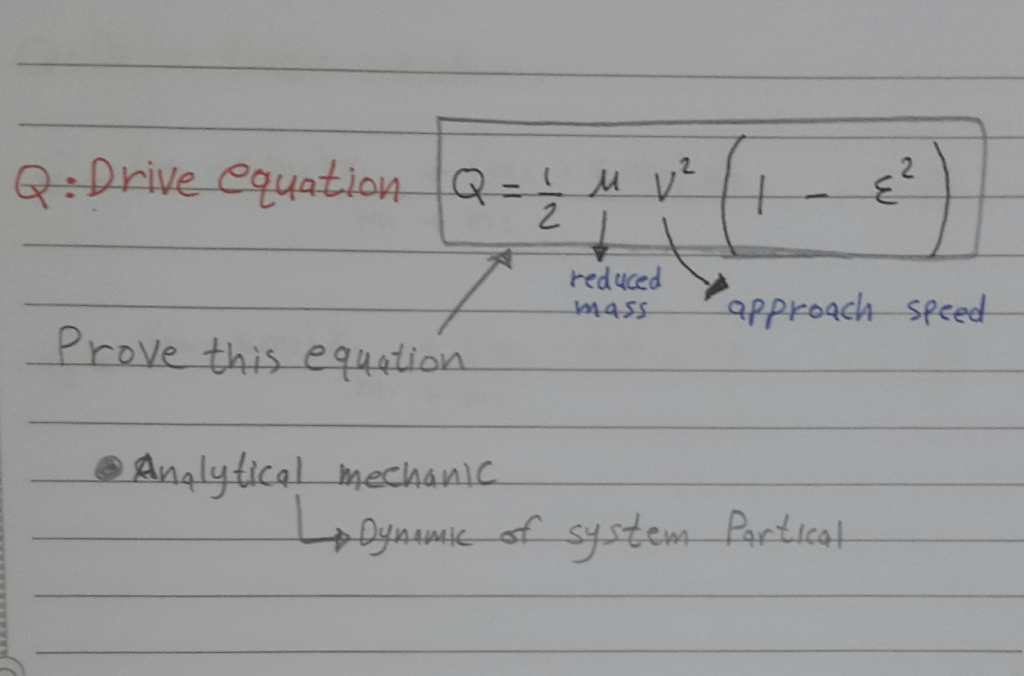 Q: Drive equation Q = 1/2 μ v² (1 - ε²)
reduced mass
approach speed
Prove this equation
• Analytical mechanic
Dynamic of system Partical